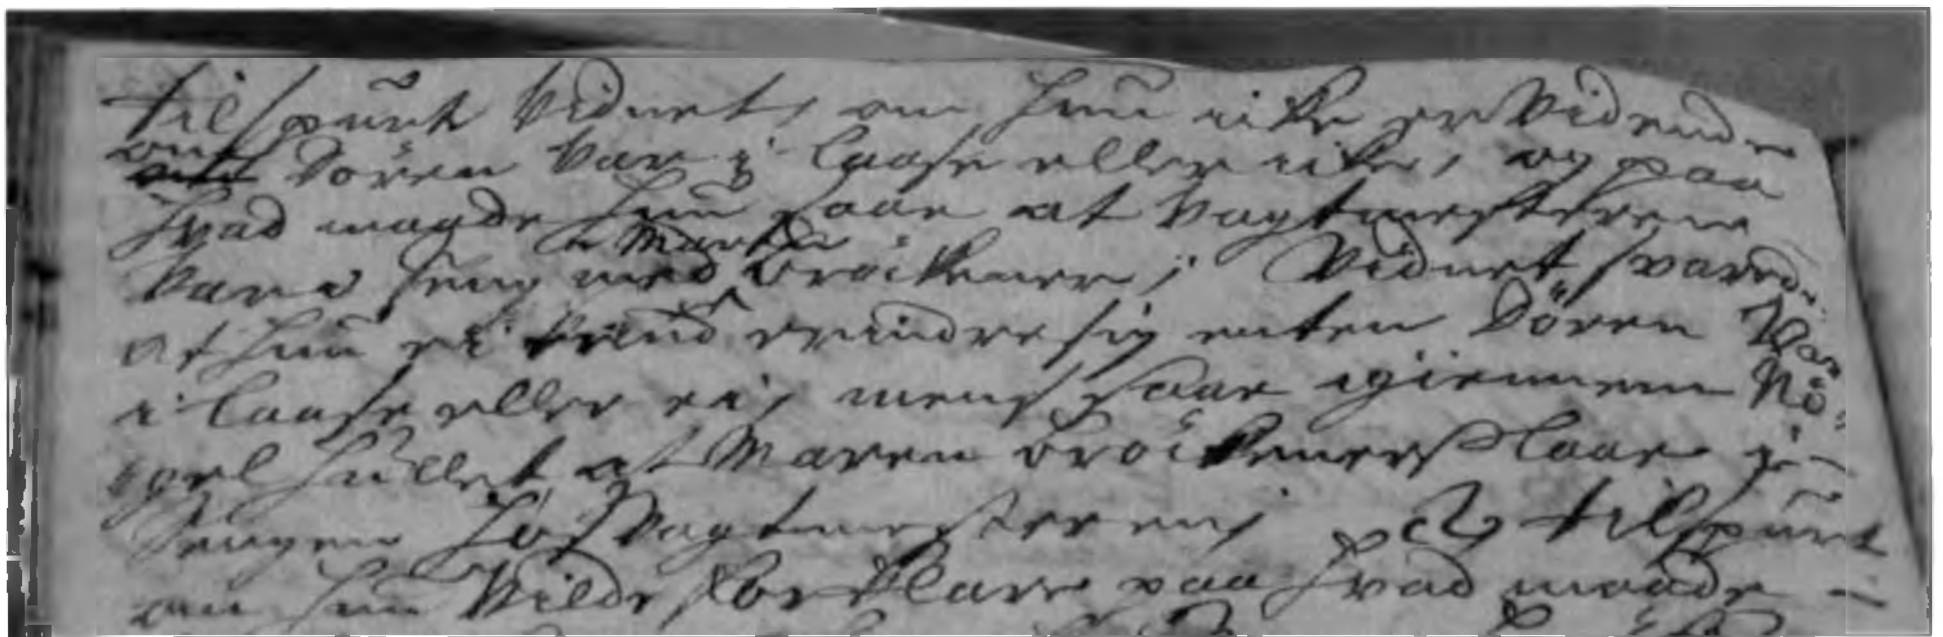 tilspurt Vidnet, om hun icke er Vidende
om Dören Var i laase eller icke, og paa
hvad maade hun saae at Vagtmesteren
Var i seng med Maren Bröckener; Vidnet svarede
at hun ei kand erindre sig enten Dören Var
i laase eller ei, mens saae igiennem Nö-
gel hullet at Maren Bröckeners laae i
Sengen hos Vagtmesteren, tilspurt
om hun Vilde forklare paa hvad maade